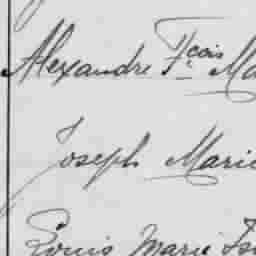 Alexandre Fçois Ma
Joseph Marie
Louis Marie